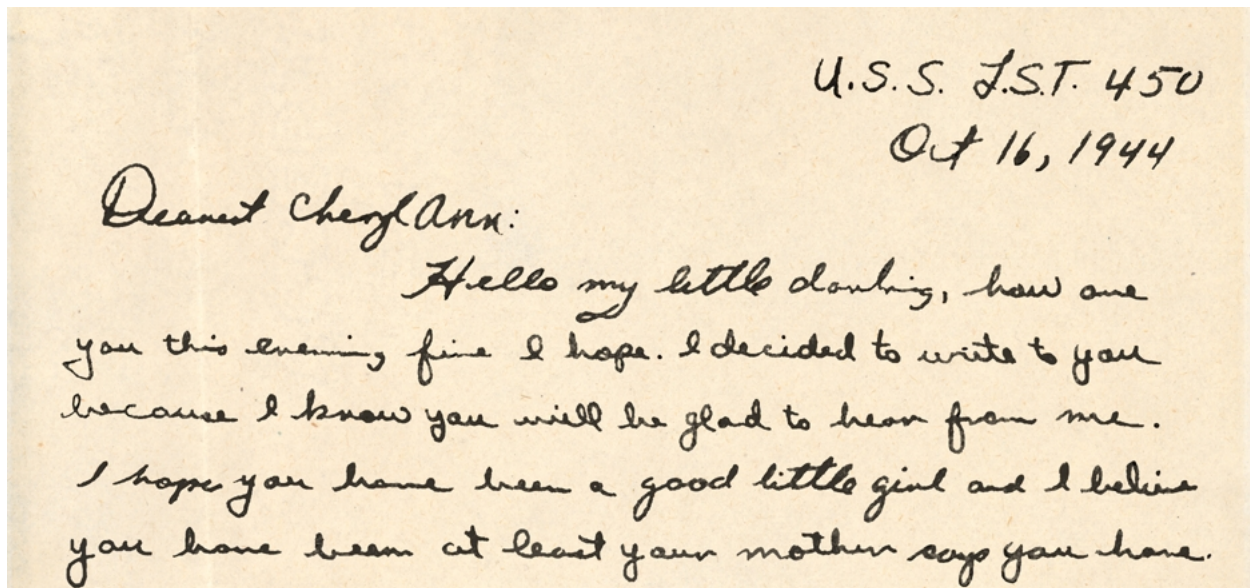 U.S.S. L.S.T. 450
Oct 16, 1944
Dearest Cheryl Ann:
Hello my little darling, how are
you this evening fine I hope. I decided to write to you
because I know you will be glad to hear from me.
I hope you have been a good little girl and I believe
you have been at least your mother says you have.